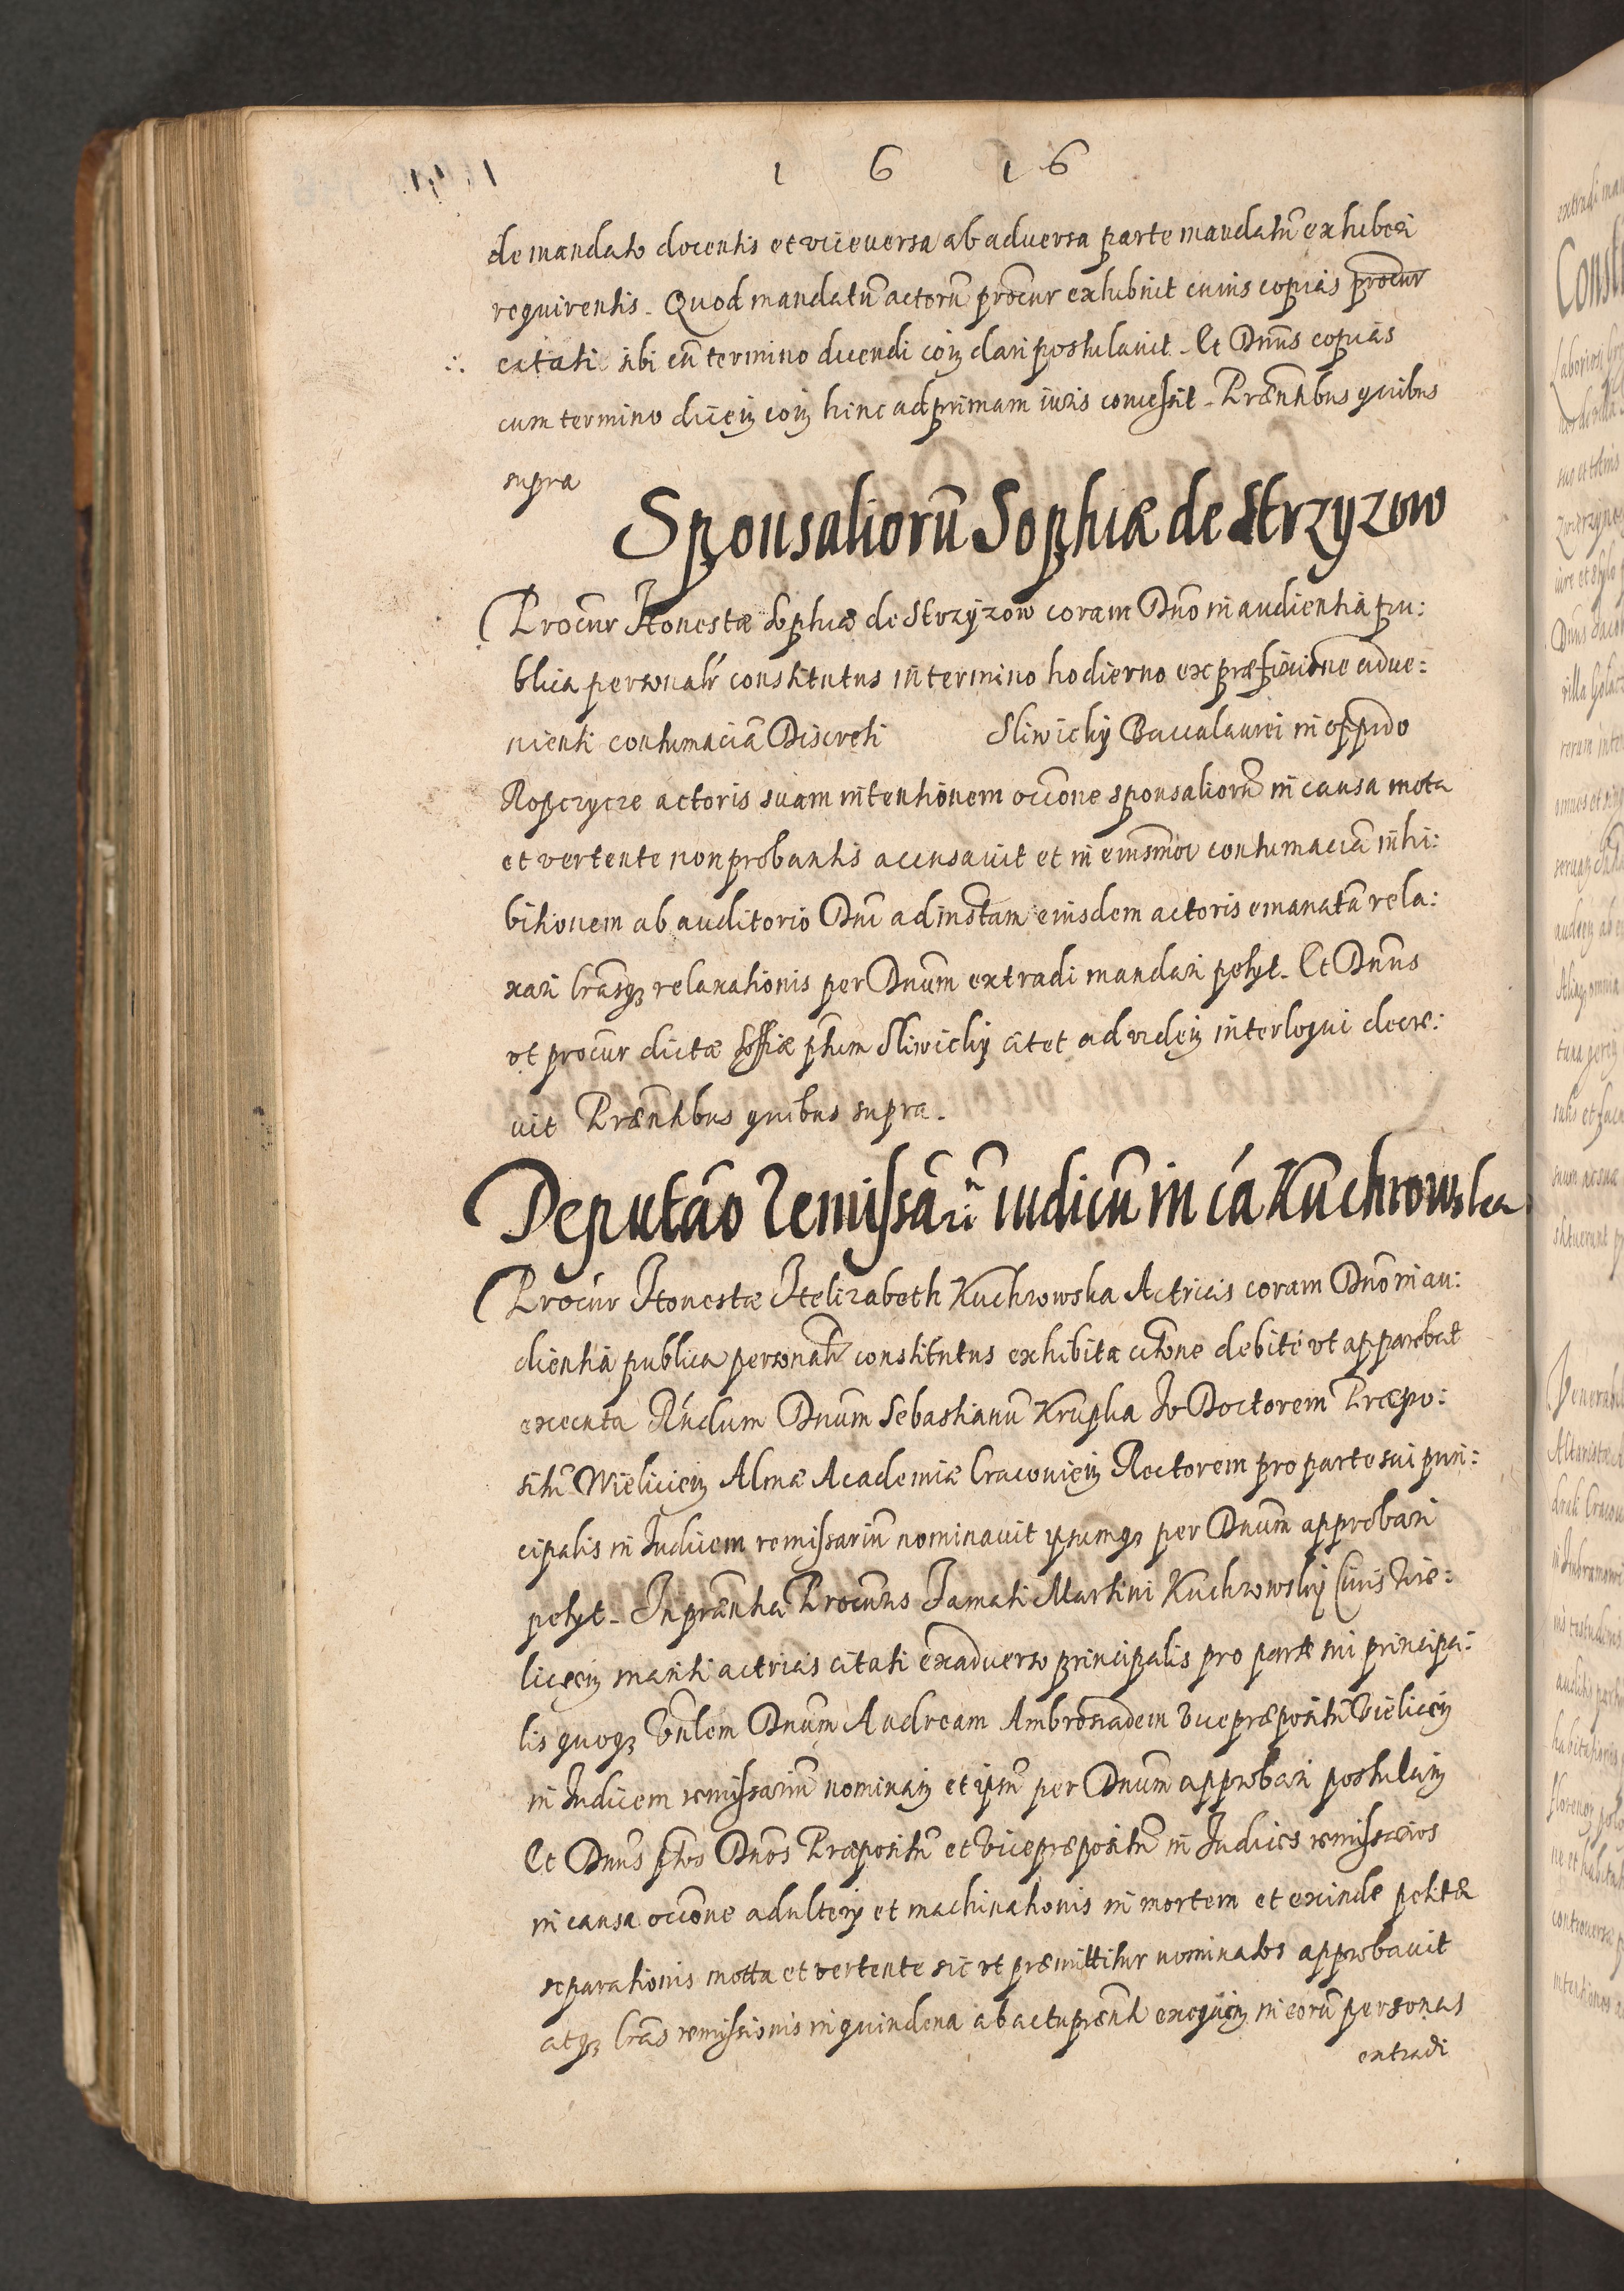 1 6 1 6
de mandato docentis et viceversa ab adversa parte mandatũ exhiberi
requirentis. Quod mandatũ actorũ procur exhibuit cuius copias procur
citati sibi cũ termino dicendi coɱ dari postulavit. Et Dnus copias
cum termino diceɱ coɱ hinc ad primam iuris concessit. Præntibus quibus
supra
Sponsaliorũ Sophiæ de Strzyzow
Procur Honestæ Sophiæ de Strzyzow coram Dno in audientia pu:
blica personalr constitutus in termino hodierno ex præfixione adve:
nienti contumaciã Discreti Sliwicky Baccalaurei in oppido
Ropczycze actoris suam intentionem occõne sponsaliorũ in causa mota
et vertente non probantis accusavit et in eiusmoi contumaciã inhi:
bitionem ab auditorio Dni ad instam eiusdem actoris emanatã rela:
xari lrasqȝ relaxationis per Dnum extradi mandari petyt. Et Dnus
vt procur dictæ Soffiæ pttum Sliwicky citet ad videɱ interloqui decre:
vit Præntibus quibus supra.
Deputão remissãri iudicũ in cá Kuchrowska
Procur Honestæ Helizabeth Kuchrowska Actricis coram Dno in au:
dientia publica personalr constitutus exhibita citõne debite vt apparebat
executa Rñdum Dnum Sebastianũ Krupka Iv Doctorem Præpo:
sitũ Wieliceɱ Almæ Academiæ Cracovieɱ Rectorem pro parte sui prin:
cipalis in Iudicem remissariũ nominavit ipsumqȝ per Dnum approbari
petyt. In præntia Procuris Famati Martini Kuchrowsky Civis Vie:
liceɱ mariti actricis citati ex adverso principalis pro parte sui principa:
lis quoqȝ Vnlem Dnum Andream Ambrosiadem Vicepræpositũ Vieliceɱ
in Iudicem remissariũ nominaɱ et ipm per Dnum approbari postulaɱ
Et Dnus pttos Dnos Præpositũ et Vicepræpositũ in Iudices remissarios
in causa occõne adultery et machinationis in mortem et exinde petitæ
separationis motta et vertente sic vt præmittitur nominatos approbavit
atqȝ lras remissionis in quindena ab actu prænti exequeɱ in eorũ personas
extradi